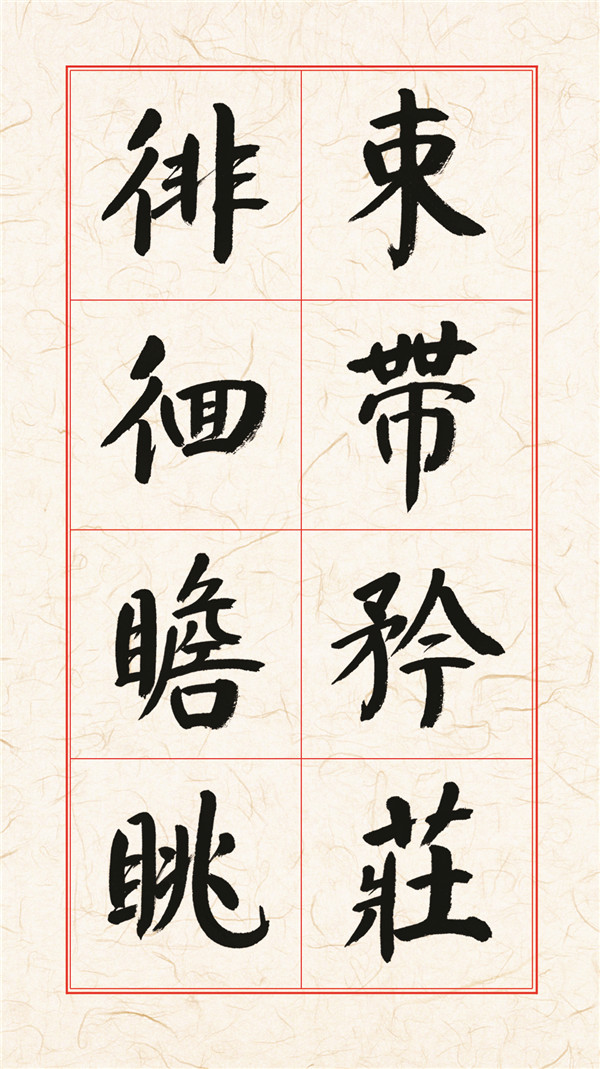 束帶矜莊
徘徊瞻眺